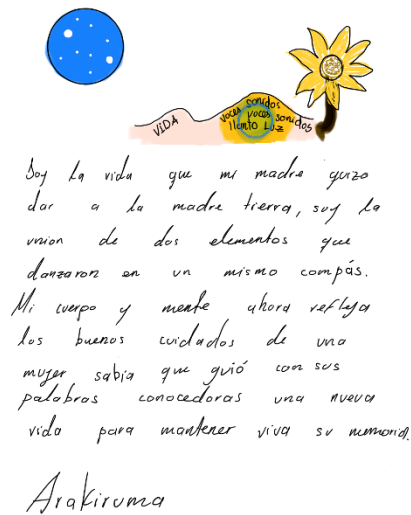 VIDA
voces sonidos
voces sonidos
llanto Luz
Soy la vida que mi madre quizo
dar a la madre tierra, soy la
union de dos elementos que
danzaron en un mismo compás.
Mi cuerpo y mente ahora refleja
los buenos cuidados de una
mujer sabia que guió con sus
palabras conocedoras una nueva
vida para mantener viva su memoria.
Arakiruma